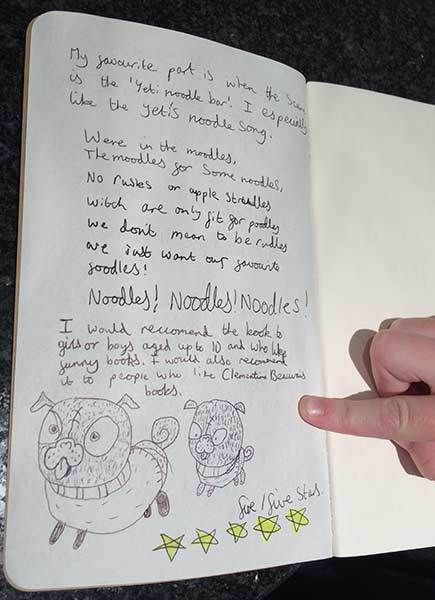 My favourite part is when the scene
is the 'Yeti noodle bar'. I especially
like the yeti's noodle song.
Were in the moodles,
The moodles for some noodles,
No rusles or apple strudles
witch are only fit for poodles
we don't mean to be rudles
we just want our favourite
foodles!
Noodles! Noodles! Noodles!
I would reccomend the book to
girls or boys aged up to 10 and who like
funny books. I would also recomend
it to people who like Clementine Beauvais
books.
five/five stars.